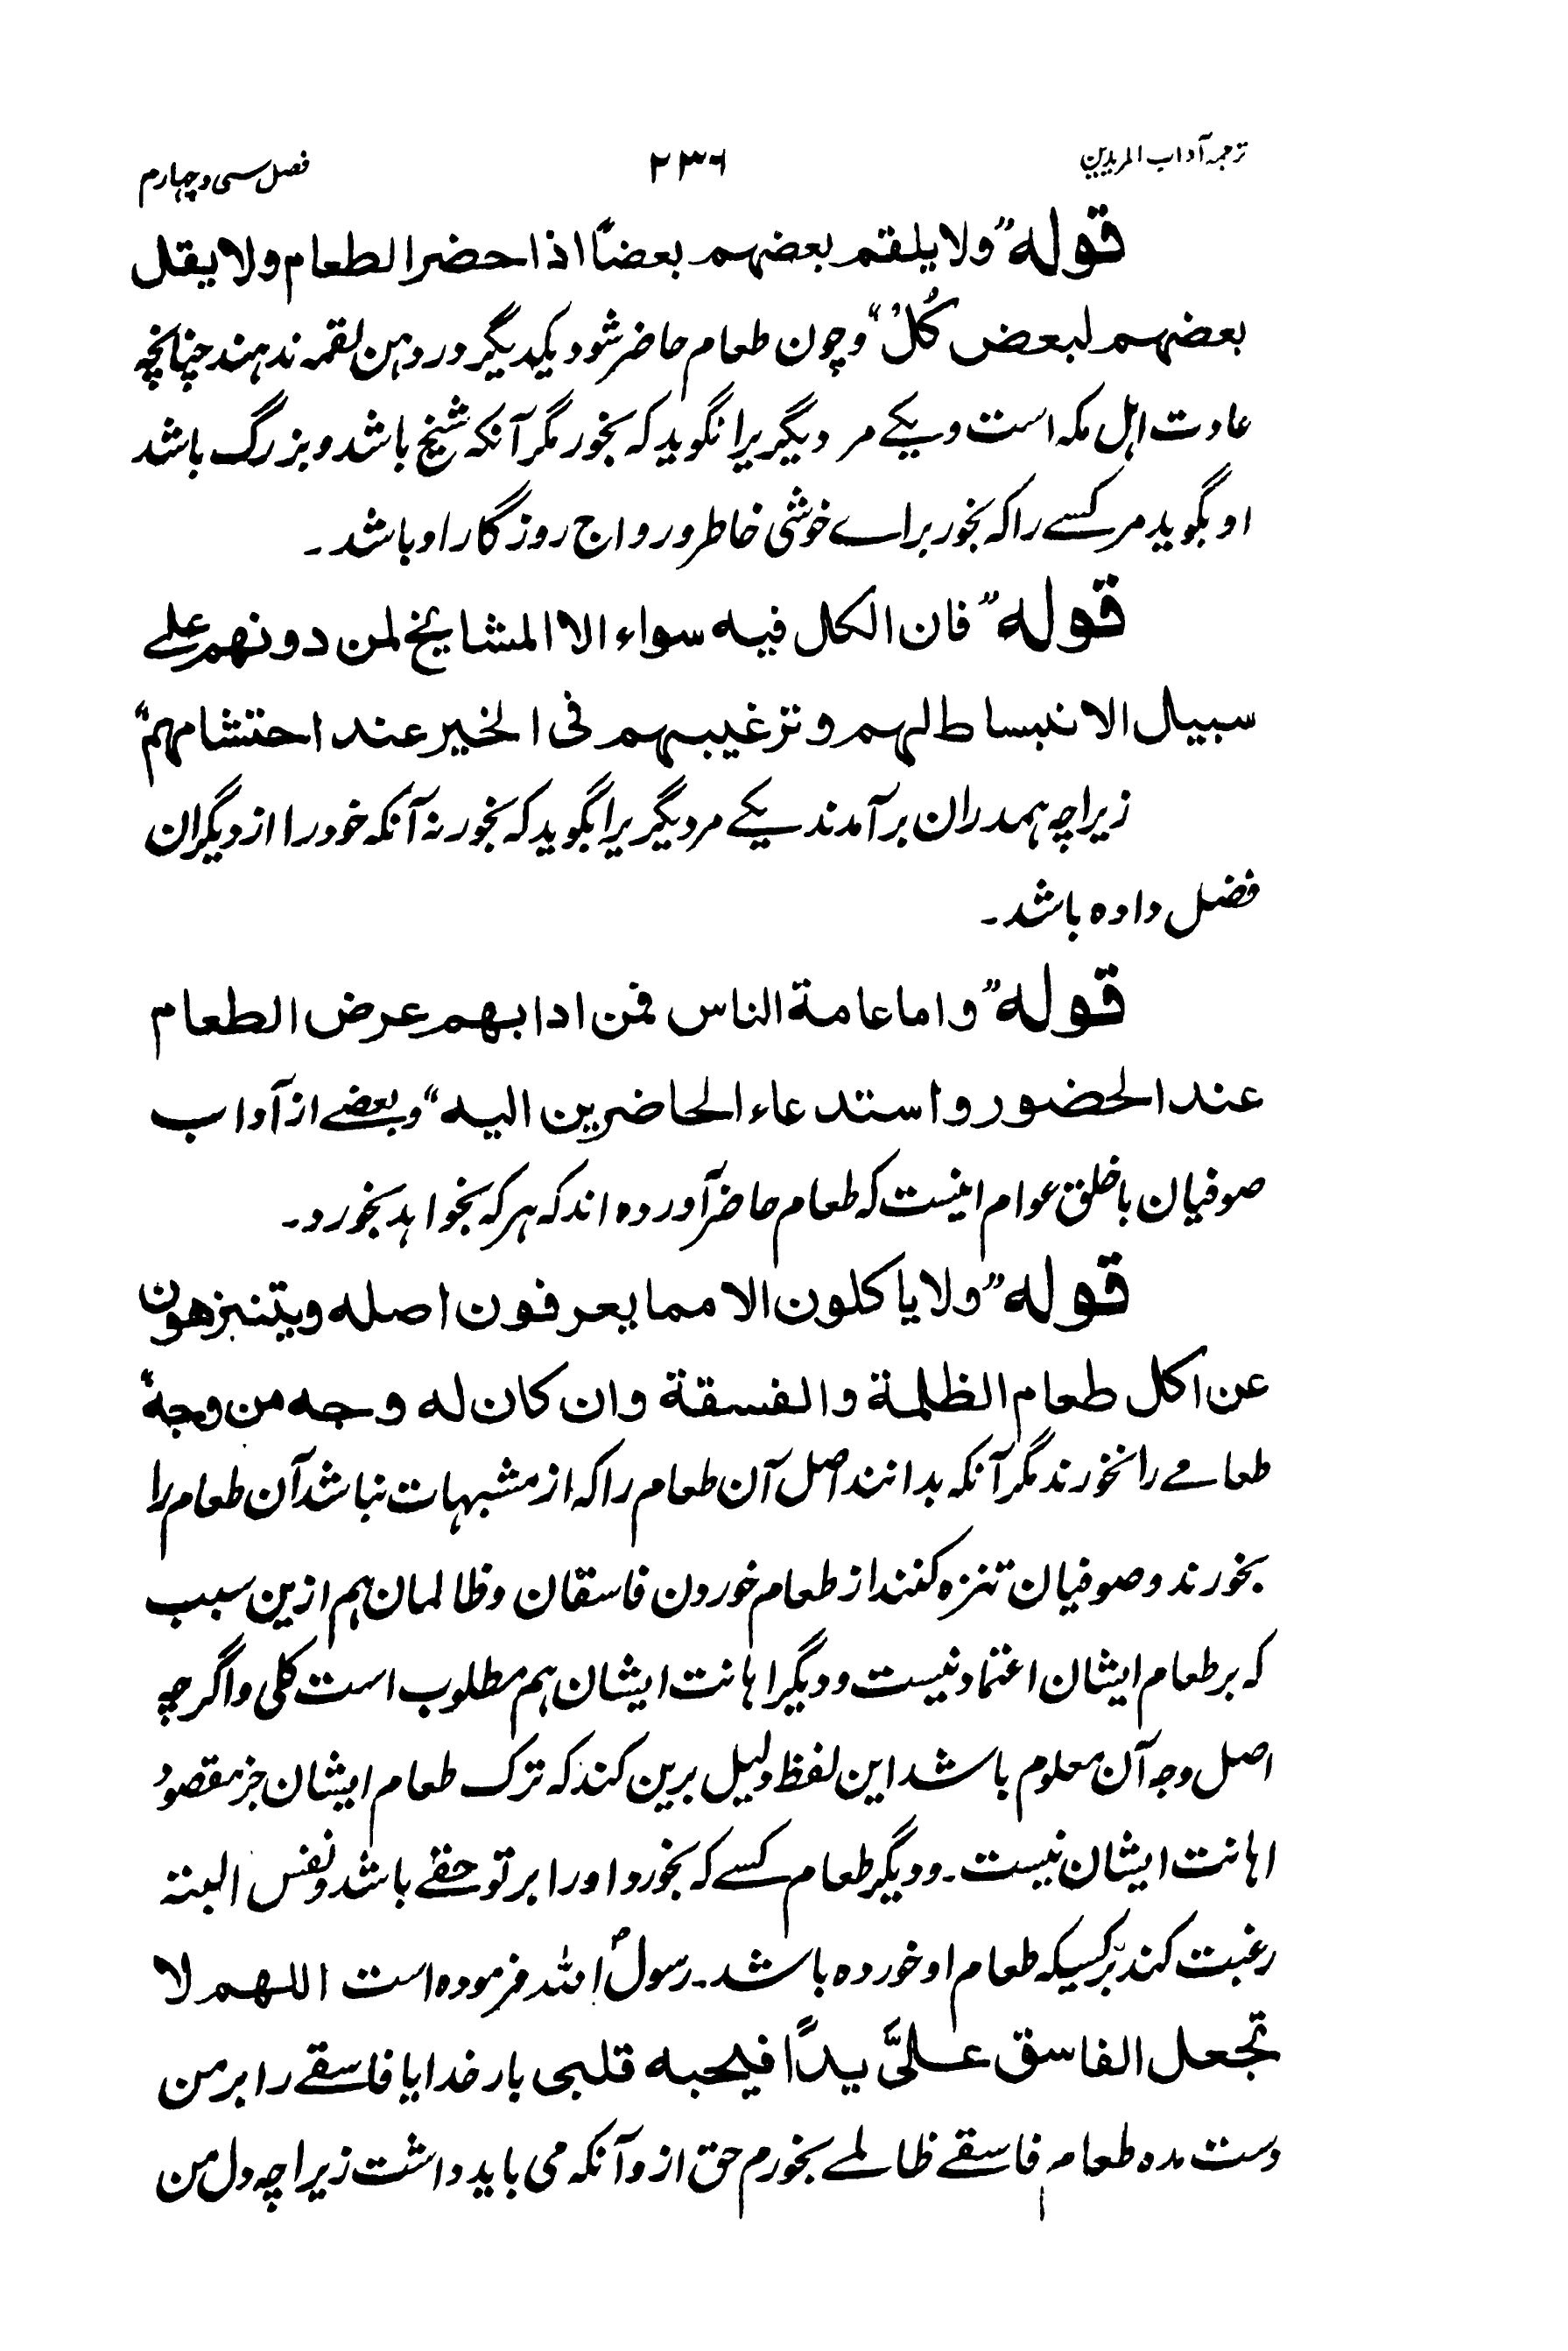 ترجمہ آداب المریدین ۲۳۶ فصل سی و چہارم
قوله ”ولا یلقم بعضہم بعضًا اذا حضر الطعام ولا یقل
بعضہم لبعض کُلْ“ و چون طعام حاضر شود یکدیگر در دہن لقمہ ندہند چنانچہ
عادت اہل مکہ است و یکے مر دیگریرا نگوید کہ بخور مگر آنکہ شیخ باشد و بزرگ باشد
او بگوید مر کسے را کہ بخور براے خوشی خاطر و رواج روزگار او باشد ۔
قوله ”فان الکل فیہ سواء الا المشایخ لمن دونهم علے
سبیل الانبساط لہم و ترغیبہم فی الخیر عند احتشامہم“
زیراچہ ہمدران بر آمدند یکے مر دیگریرا بگوید کہ بخور نہ آنکہ خود را از دیگران
فضل دادہ باشد ۔
قوله ”و اما عامة الناس فمن ادابهم عرض الطعام
عند الحضور و استدعاء الحاضرین الیہ“ و بعضے از آداب
صوفیان با خلق عوام اینست کہ طعام حاضر آوردہ اند کہ ہر کہ بخواہد بخورد ۔
قوله ”ولا یاکلون الا مما یعرفون اصله ویتنزهون
عن اکل طعام الظلمة والفسقة وان کان له وجه من وجه“
طعامے را نخورند مگر آنکہ بدانند اصل آن طعام را کہ از مشبہات نباشد آن طعام را
بخورند و صوفیان تنزہ کنند از طعام خوردن فاسقان و ظالمان ہم ازین سبب
کہ بر طعام ایشان اعتماد نیست و دیگر اہانت ایشان ہم مطلوب است کلی و اگرچہ
اصل وجہ آن معلوم باشد این لفظ دلیل برین کند کہ ترک طعام ایشان جز مقصود
اہانت ایشان نیست ۔ و دیگر طعام کسے کہ بخورد او را بر تو حقے باشد و نفس البتہ
رغبت کند بر کسیکہ طعام او خوردہ باشد ۔ رسولؐ اللہ فرمودہ است اللهم لا
تجعل الفاسق علیَّ یدًا فیحبه قلبی بار خدایا فاسقے را بر من
دست مدہ طعام فاسقے ظالمے بخورم حق از و آنکہ می باید داشت زیراچہ دل من